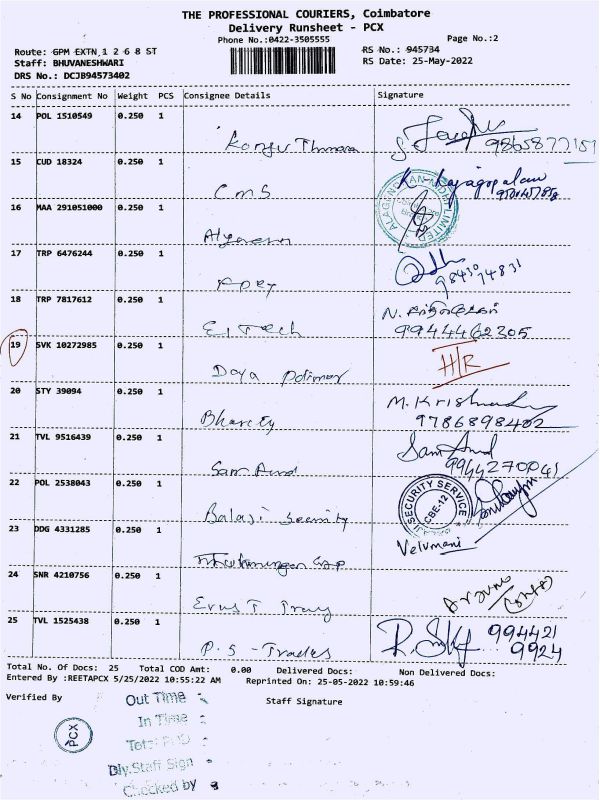 THE PROFESSIONAL COURIERS, Coimbatore
Delivery Runsheet - PCX
Phone No.:0422-3505555 Page No.:2
Route: GPM EXTN,1 2 6 8 ST RS No.: 945734
Staff: BHUVANESHWARI RS Date: 25-May-2022
DRS No.: DCJB94573402
S No Consignment No Weight PCS Consignee Details Signature
14 POL 1510549 0.250 1
9865877151
15 CUD 18324 0.250 1
CMS K. Rajagopalan
16 MAA 291051000 0.250 1
17 TRP 6476244 0.250 1
9843074831
18 TRP 7817612 0.250 1
E, Tech N.
9944462305
19 SVK 10272985 0.250 1 H/R
Daya Polimar
20 STY 39094 0.250 1 M. Krishna
9786898402
21 TVL 9516439 0.250 1 Sam And
Sam And 9944270041
22 POL 2538043 0.250 1
SECURITY SERVICE
CBE-12
Balaji Security
23 DDG 4331285 0.250 1 Velumani
24 SNR 4210756 0.250 1
25 TVL 1525438 0.250 1 994421
P.S - Trades 9924
Total No. Of Docs: 25 Total COD Amt: 0.00 Delivered Docs: Non Delivered Docs:
Entered By :REETAPCX 5/25/2022 10:55:22 AM Reprinted On: 25-05-2022 10:59:46
Verified By Staff Signature
Out Time :
In Time :
PCX
Dly.Staff Sign :
Checked by